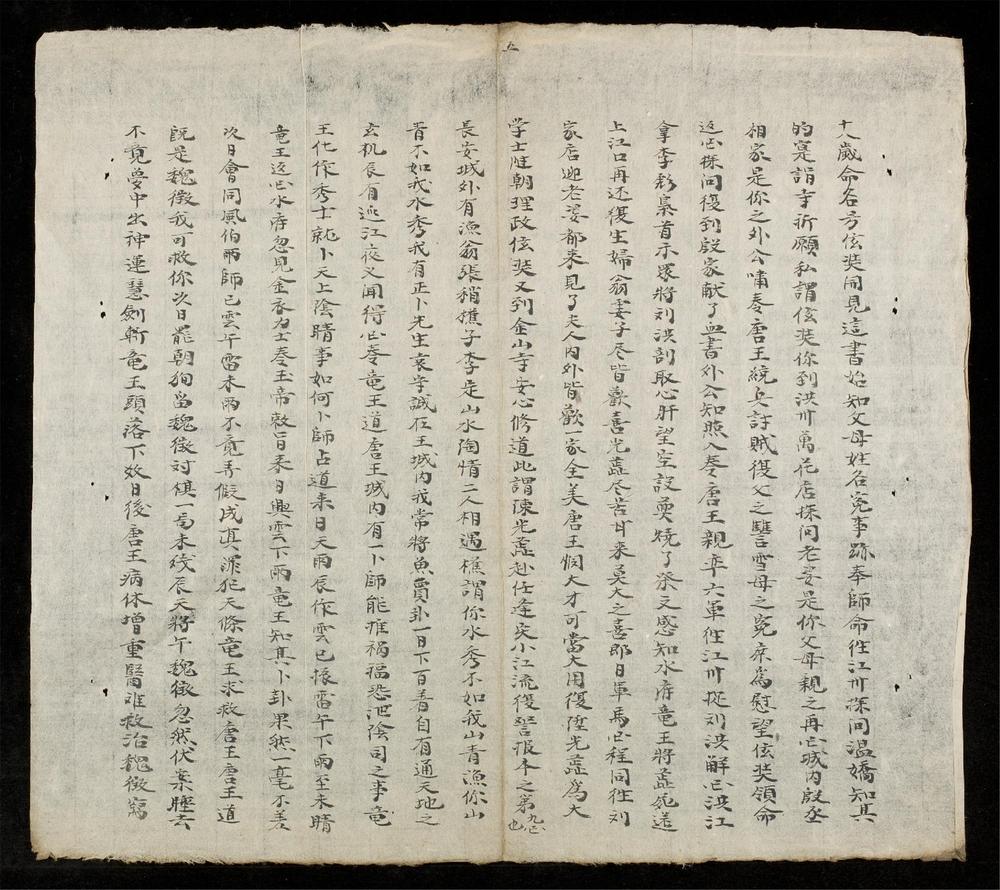 五
十八歲命名方伭奘開見這書始知父母姓名冤事跡奉師命徃江州探问温嬌知其
的寔詣寺祈願私謂伭奘你到洪州萬花店探问老婆是你父母親之再囬城内殷丞
相家是你之外公啸奏唐王統兵討賊復父之讐雪母之冤庶為慰望伭奘領命
返囬探问復到殷家献了血書外公知照入奏唐王親率六軍徃江州捉刘洪解囬洪江
拿李彪梟首示眾將刘洪剖取心肝望空設奠燒了祭文感知水府竜王將蕋屍送
上江口再还復生婦翁妻子尽皆歡喜光蕋尽苦甘来莫大之喜即日軍馬囬程同徃刘
家店迎老婆都来見了夫人内外皆歡一家全美唐王悯大才可當大用復陞光蕋為大
学士隨朝理政伭奘又到金山寺安心修道此謂陳光蕋赴任逢灾小江流復讐报本之第九囬也
長安城外有漁翁張稍樵子李定山水陶情二人相遇樵謂你水秀不如我山青漁你山
青不如我水秀我有正卜先生袁守誠在王城内我常將魚賣卦一日下百着自有通天地之
玄机辰有巡江夜叉闻得囬奏竜王道唐王城内有一卜師能推祸福恐泄陰司之事竜
王化作秀士就卜天上陰晴事如何卜師占道来日天雨辰作雲巳振雷午下雨至未晴
竜王返囬水府忽見金衣力士奏玉帝敕旨来日興雲下雨竜王知其卜卦果然一毫不差
次日會同風伯雨師巳雲午雷未雨不竟弄假成真罪犯天條竜王求救唐王唐王道
既是魏徵我可救你次日罷朝狥留魏徵対倛一局未残辰天將午魏徵忽然伏案睡去
不竟夢中出神運慧剑斬竜王頭落下效日後唐王病体增重醫难救治魏徵寫